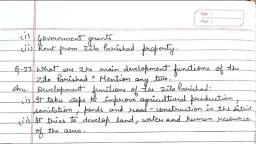 Date
Page
(i) Government grants
(ii) Rent from Zila Parishad property.
Q-27 What are the main development funtions of the
Zila Parishad? Mention any two.
Ans. Development funtions of the Zila Parishad:
(i) It take steps to improve agricultural production,
sanitation, ponds and road-construction in the district
(ii) It tries to develop land, water and human resources
of the area.